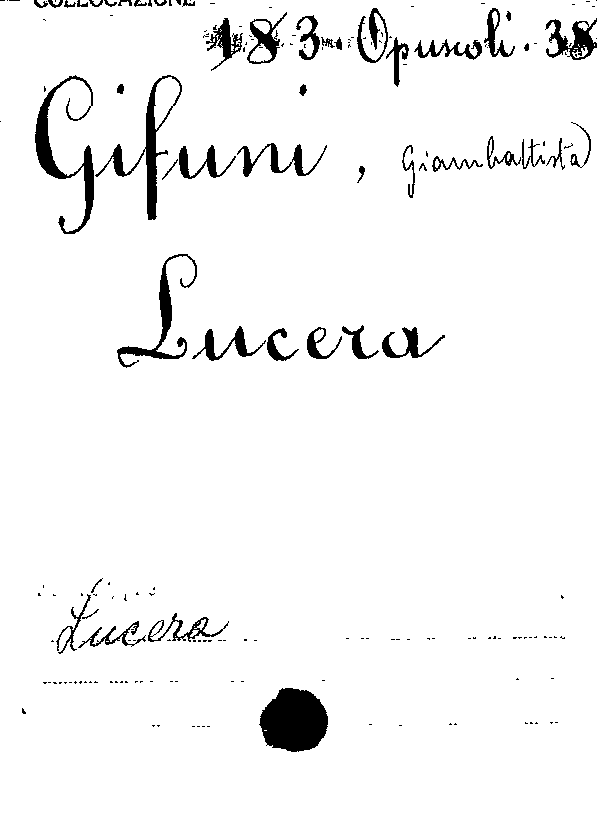 COLLOCAZIONE
183. Opuscoli. 38
Gifuni, Giambattista
Lucera
Lucera